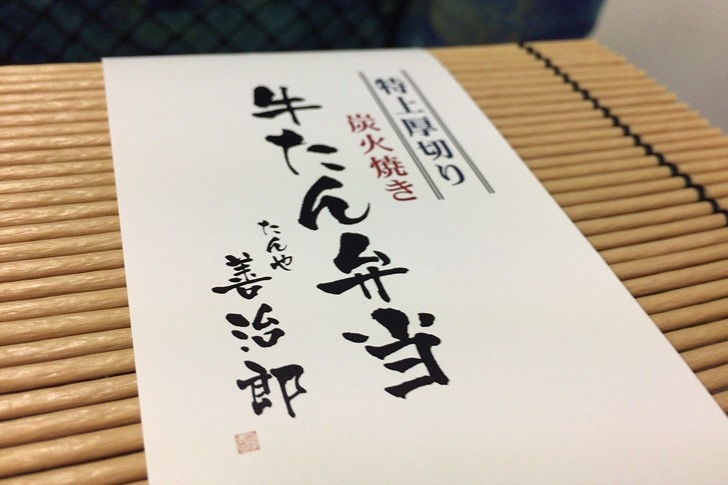 特上厚切り
炭火焼き
牛たん弁当
たんや
善治郎